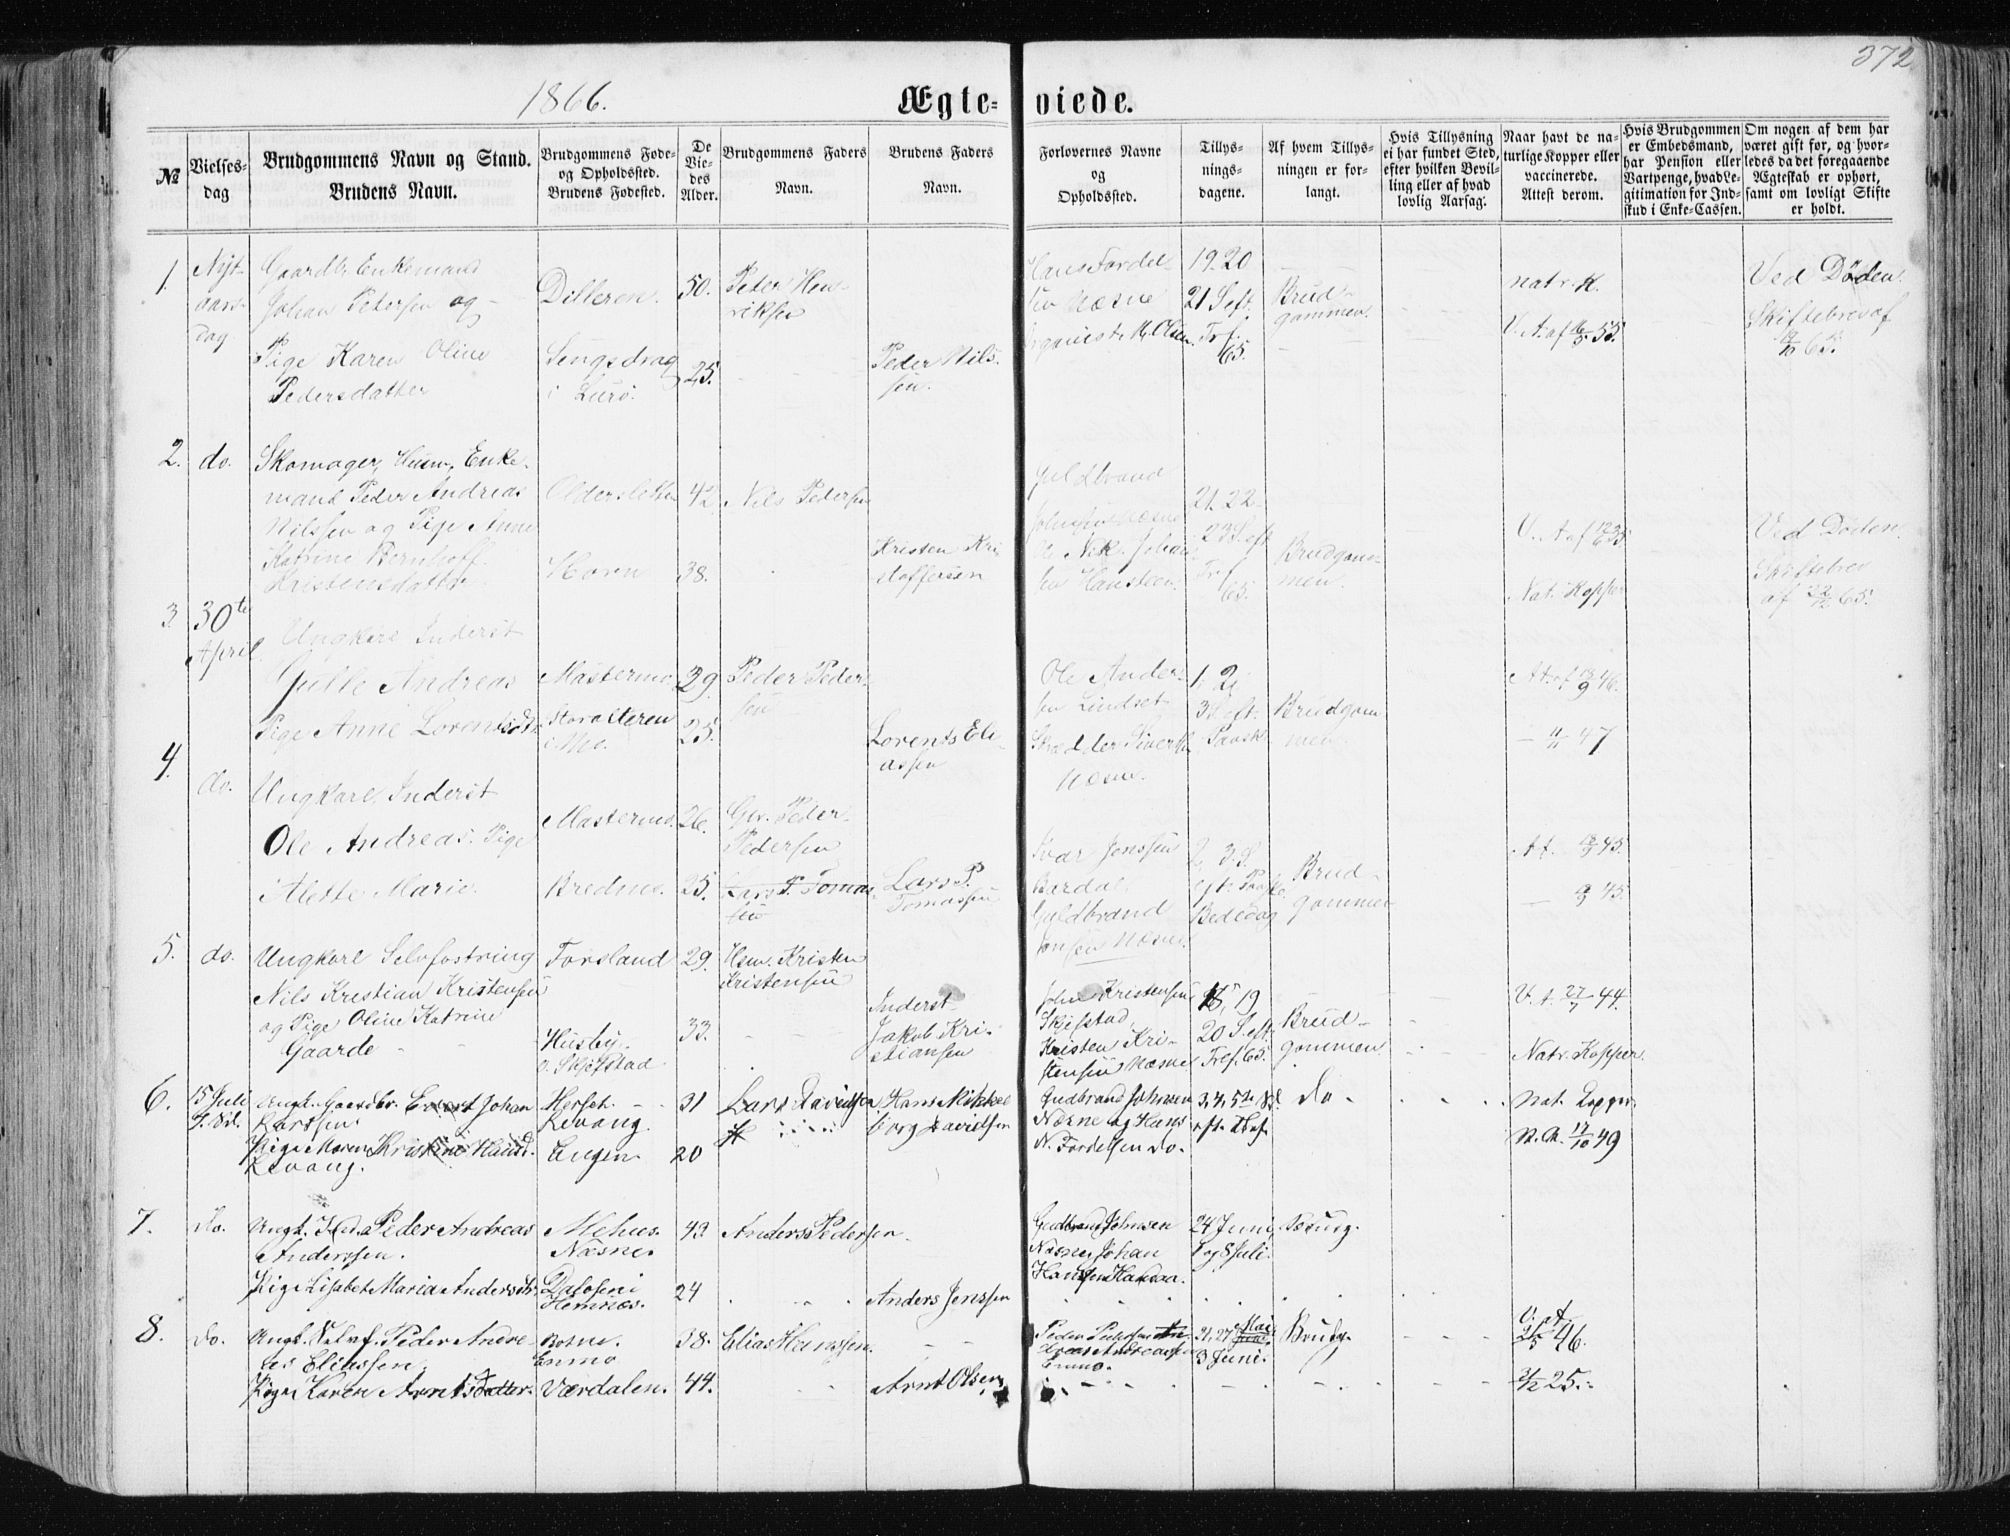 372
1866.
Ægte= viede.
№
Vielses-
dag
Brudgommens Navn og Stand.
Brudens Navn.
Brudgommens Føde-
og Opholdssted.
Brudens Fødested.
De
Vie-
des
Alder.
Brudgommens Faders
Navn.
Brudens Faders
Navn.
Forlovernes Navne
og
Opholdssted.
Tillys-
nings-
dagene.
Af hvem Tillys-
ningen er for-
langt.
Hvis Tillysning
ei har fundet Sted,
efter hvilken Bevil-
ling eller af hvad
lovlig Aarsag.
Naar havt de na-
turlige Kopper eller
vaccinerede.
Attest derom.
Hvis Brudgommen
er Embedsmand,
har Pension eller
Vartpenge, hvad Le-
gitimation for Ind-
skud i Enke-Cassen.
Om nogen af dem har
været gift før, og hvor-
ledes da det foregaaende
Ægteskab er ophørt,
samt om lovligt Skifte
er holdt.
1.
Nyt-
aars-
dag
Gaardb. Enkemand
Johan Petersen og
Pige Karen Oline
Pedersdatter
Dilleren.
Sengsdrag
i Lurö.
50.
25.
Peter Hen-
riksen
Peder Nils-
sen.
Hans Fordel-
sen Næsne
Organist M. Olsen
19. 20
21 S. eft.
Tref.
65.
Brud-
gommen.
natr. K.
V. A. af 55.
Ved Döden.
Skiftebrev af
65.
2.
do.
Skomager, Husm. Enke-
mand Peder Andreas
Nilssen og Pige Anne
Katrine Bernhoff
Kristensdatter
Oldersletten
Horn
42
38.
Nils Pedersen
Kristen Kri-
stoffersen
Guldbrand
Johnsen Næsne
Johan-
sen Hansteen
21. 22.
23 S. eft
Tref
65.
Brudgom-
men.
V. A. af 35.
Nat. Kopper
Ved Döden.
Skiftebrev
af 22/12 65.
3.
30te
April.
Ungkarl Inderst
Julle Andreas
Pige Anne Lorentsdtr.
Mastermo.
Storalteren
i Mo.
29.
25.
Peder Peder-
sen
Lorents Eli-
assen
Ole Ander-
sen Lindset
Skrædder Sivert
Næsne.
1, 2,
3 S. eft.
Paask.
Brudgom
men.
At. af 46.
— 47
4.
do.
Ungkarl. Inderst
Ole Andreas. Pige
Alette Marie.
Mastermo.
Bredme.
26.
25.
Peder
Pedersen
Lars P. Tomas-
sen
Lars P.
Tomassen
Ivar Jonssen
Bardal.
Guldbrand
Jonsen Næsne.
2, 3. S.
eft. Paaske
Bededag
Brud-
gommen
At. 45.
— 45.
5.
do.
Ungkarl Selvfostring
Nils Kristian Kristensen
og Pige Oline Katrine
Gaarde
Forsland
Husby.
o. Skjefstad
29.
33.
Hsm. Kristen
Kristensen
Inderst
Jakob Kri-
stiansen
John Kristensen
Skjefstad
Kristen Kri-
stensen Næsne
18, 19
20 S. eft.
Tref. 65.
Brud-
gommen
V. A. 27/7 44.
Natr. Kopper.
6.
15 Juli
Ungk. Gaardbr. Evert Johan
Larssen.
Pige Maren Kristine Hansd.
Levang.
Herset.
Levang.
Engen
31
20
Lars Davidsen
Hans Mikkel
Borg Davidsen
Gudbrand Johnsen
Næsne og Hans
N. Fordelsen do.
3, 4, 5te Sd.
eft. Tref.
do.
nat. Kopper.
At. 17/10 49
7.
do.
Ungk. Ind. Peder Andreas
Anderssen.
Pige Elisabet Maria Andersdtr.
Mehus.
Næsne.
Dalosen i
Hemnæs.
49
24
Anders Pedersen.
Anders Jenssen
Gudbrand Johnsen
Næsne, Johan
Hansen
24 Juni,
1 og 8 Juli.
Brudg.
8.
do.
Ungk. Selvf. Peder Andre-
as Eliassen.
Pige Karen Arntsdatter.
Botne.
Enmo
Værdalen.
38.
44.
Elias Hanssen.
Arnt Olsen
Peder
Andreassen
Enmo.
21, 27 Mai
3 Juni.
Brudg.
V. At
21/5 46.
25.